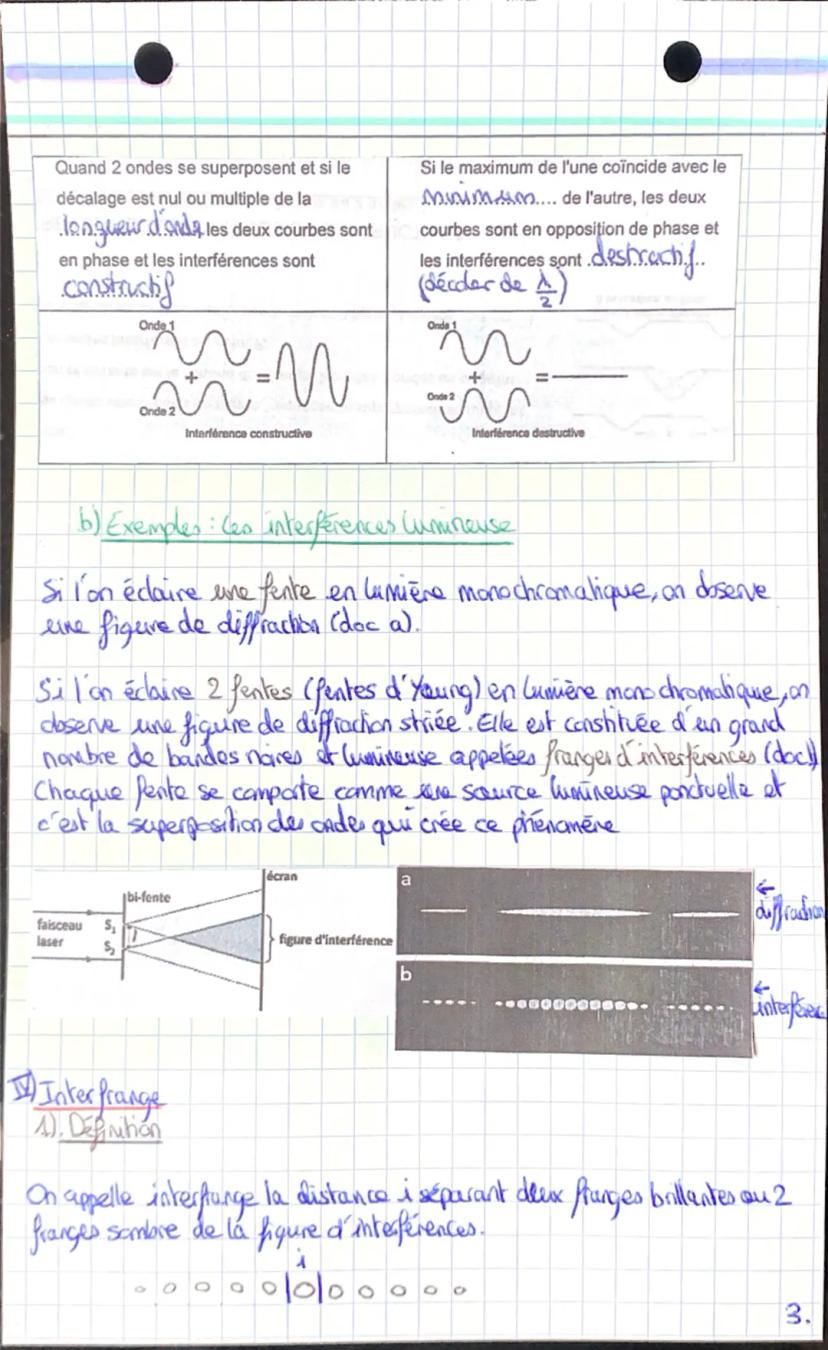 Quand 2 ondes se superposent et si le
décalage est nul ou multiple de la
longueur d'onde les deux courbes sont
en phase et les interférences sont
constructif
Si le maximum de l'une coïncide avec le
minimum.... de l'autre, les deux
courbes sont en opposition de phase et
les interférences sont .destructif..
(décaler de λ/2)
Onde 1
+
=
Onde 2
Interférence constructive
Onde 1
+
=
Onde 2
Interférence destructive
b) Exemples : Les interférences lumineuse
Si l'on éclaire une fente en lumière monochromatique, on observe
une figure de diffraction (doc a).
Si l'on éclaire 2 fentes (fentes d'Young) en lumière monochromatique, on
observe une figure de diffraction striée. Elle est constituée d'un grand
nombre de bandes noires et lumineuse appelées franges d'interférences (doc b)
Chaque fente se comporte comme une source lumineuse ponctuelle et
c'est la superposition des ondes qui crée ce phénomène
écran
bi-fente
faisceau
laser
S1
S2
figure d'interférence
a
← diffraction
b
← interférence
IV) Interfrange
1). Définition
On appelle interfrange la distance i séparant deux franges brillantes ou 2
franges sombre de la figure d'interférences.
i
3.